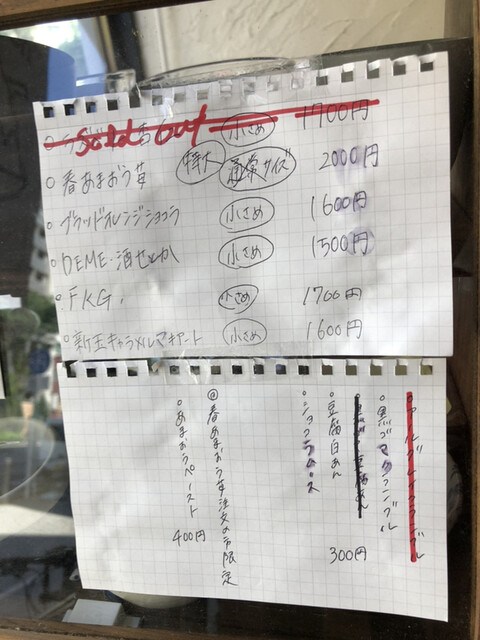 sold out 小さめ 1700円
○春あまおう苺 特大 通常サイズ 2000円
○ブラッドオレンジショコラ 小さめ 1600円
○DEME・酒せとか 小さめ 1500円
○FKG. 小さめ 1700円
○新玉キャラメルマキアート 小さめ 1600円
○黒ゴマクランブル
○豆腐白あん 300円
○ショコラムース
@春あまおう苺注文の方限定
○あまおうペースト 400円